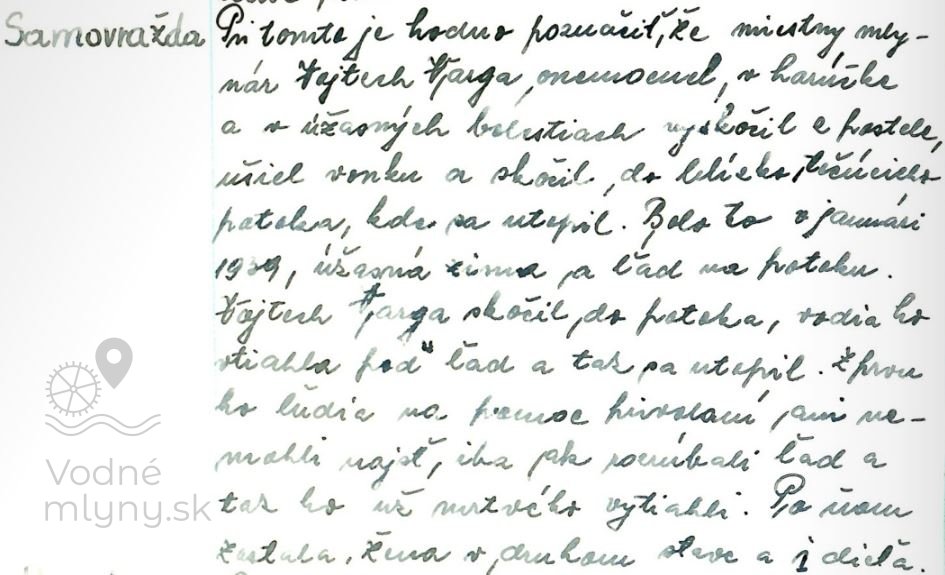 Samovražda
Pri tomto je hodno poznačiť, že miestny mly-
nár Vojtech Varga, onemocnel, v horúčke
a v úžasných bolestiach vyskočil z postele,
ušiel vonku a skočil, do blízko, tečúceho
potoka, kde sa utopil. Bolo to v januári
1939, úžasná zima, a ľad na potoku.
Vojtech Varga skočil, do potoka, voda ho
vtiahla pod ľad a tak sa utopil. Z prvu
ho ľudia na pomoc privolaní, ani ne-
mohli najsť, iba jak rozrúbali ľad a
tak ho už mrtvého vytiahli. Po ňom
zostala, žena v druhom stave a 1 dieťa.
Vodné
mlyny.sk